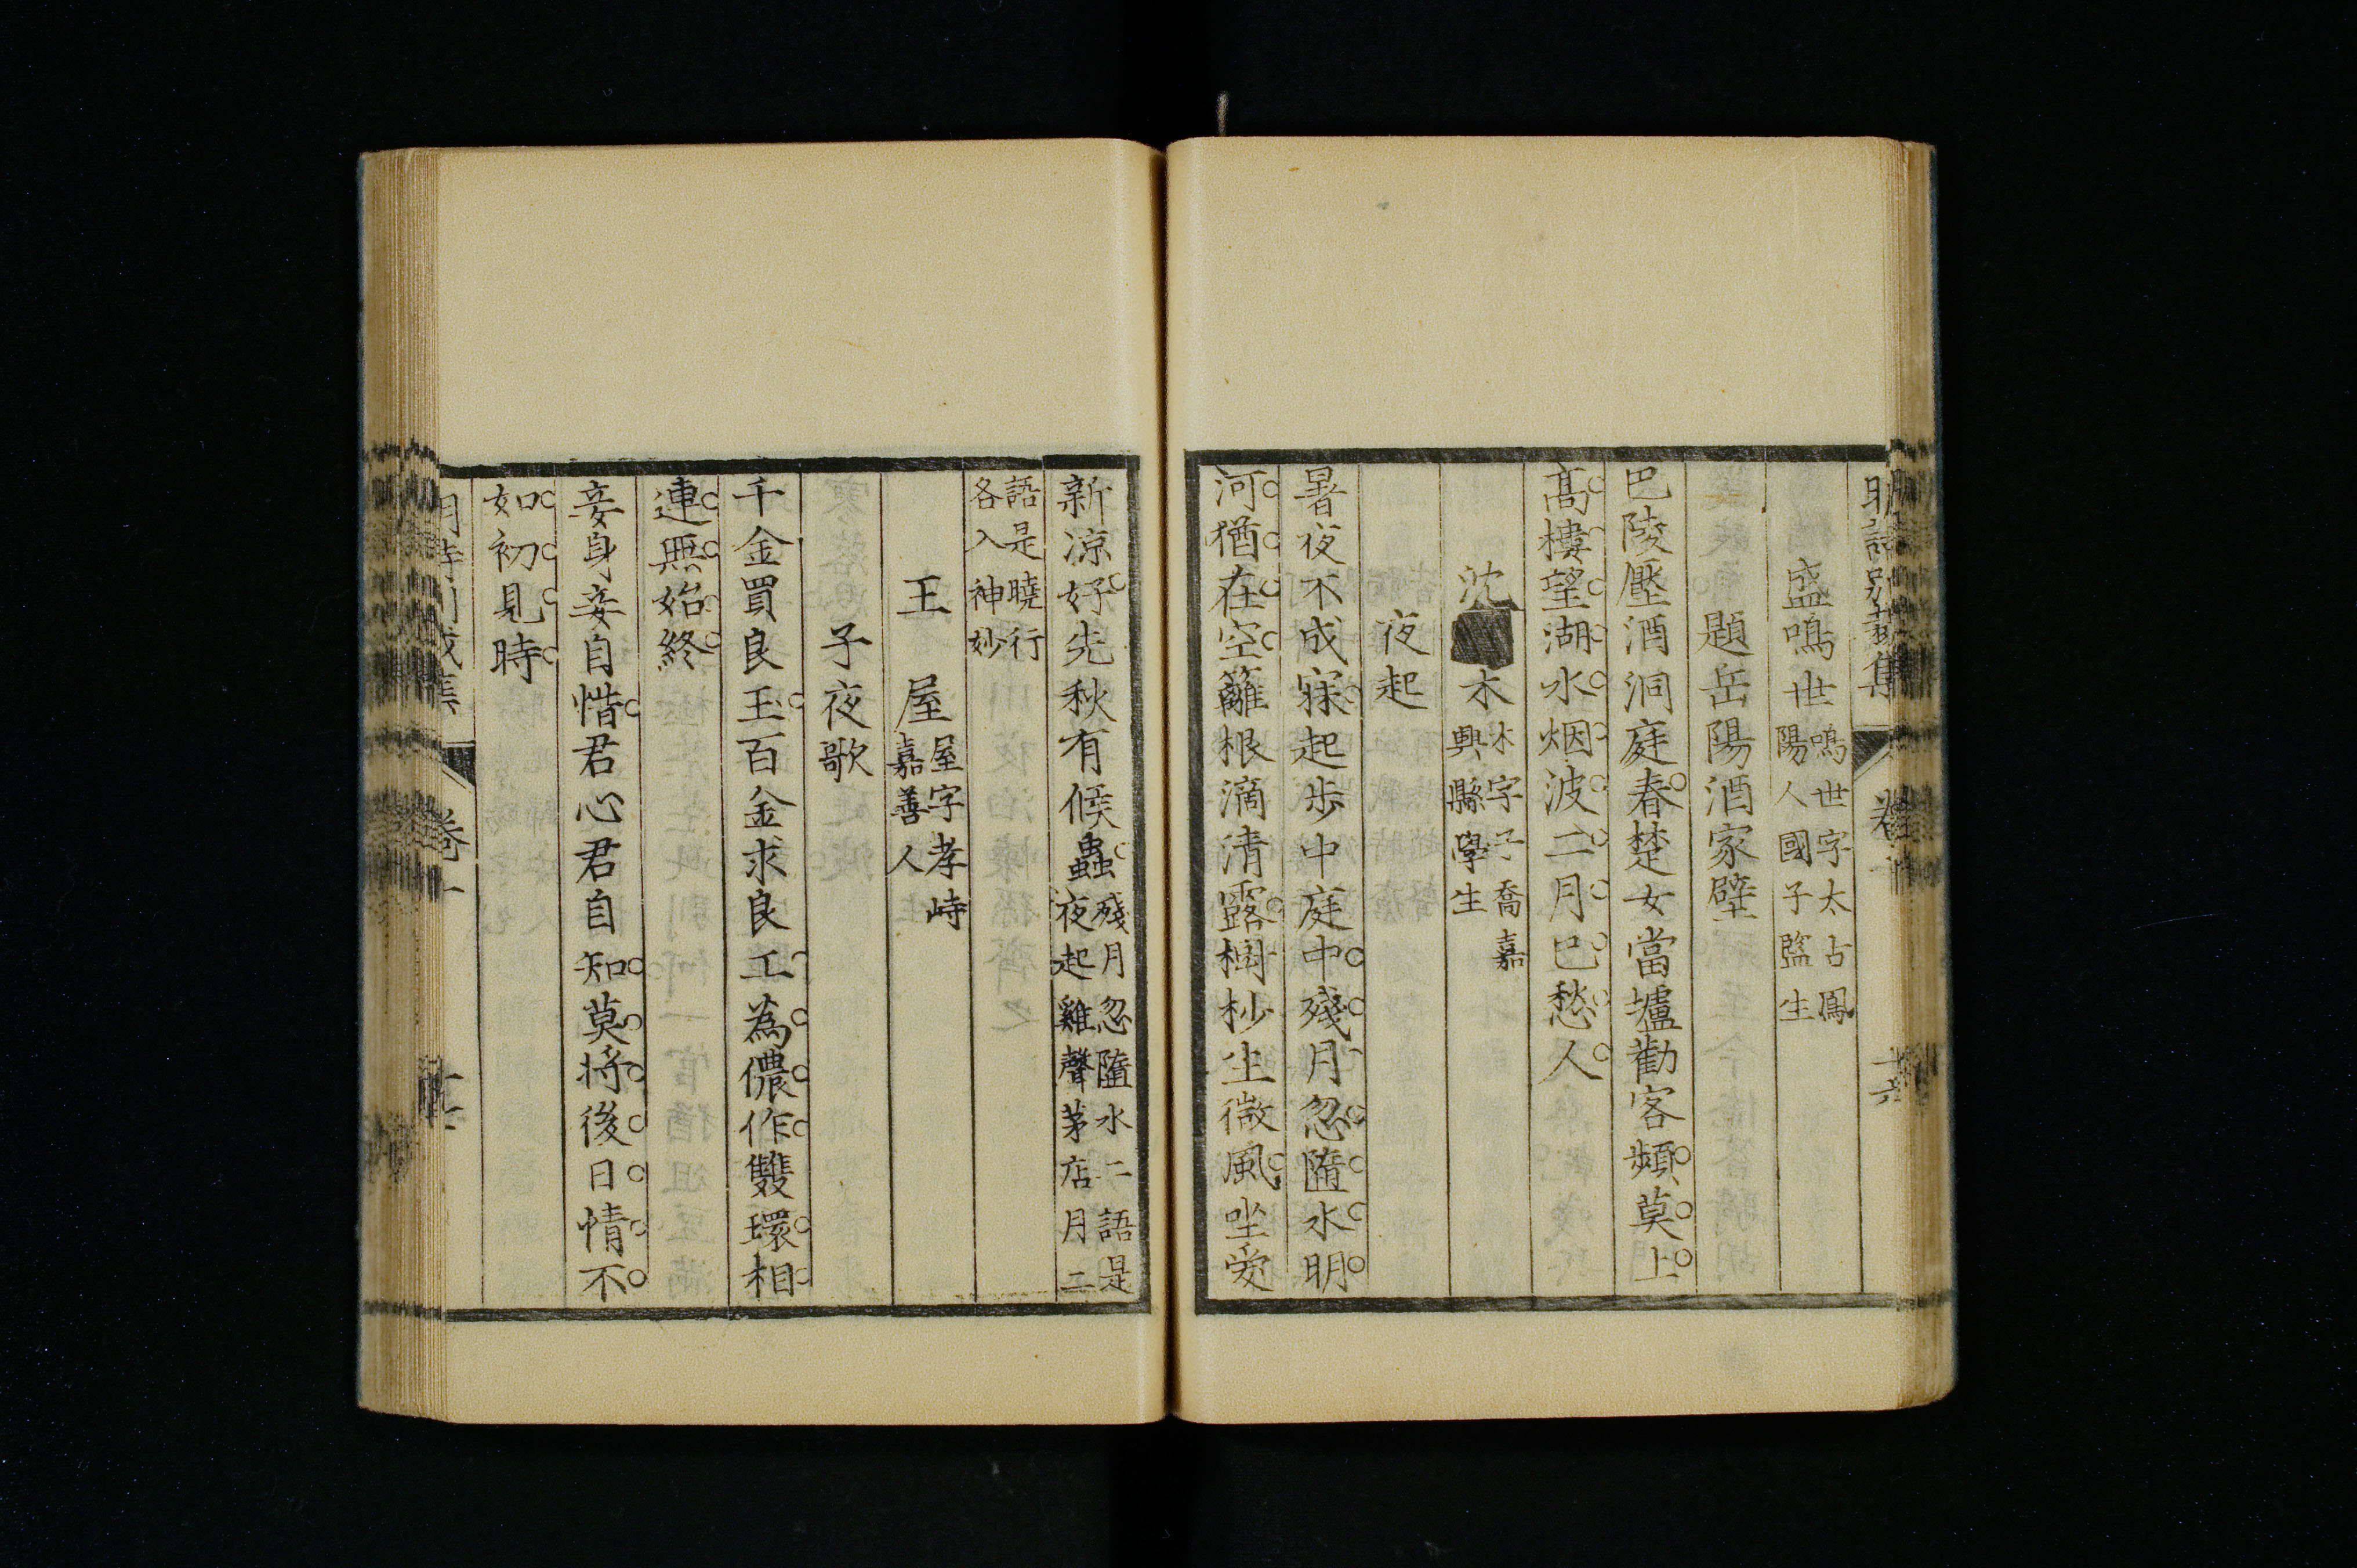 盛鳴世鳴世字太占鳳陽人國子監生
題岳陽酒家壁
巴陵壓酒洞庭春楚女當壚勸客頻莫上
高樓望湖水烟波二月巴愁人
沈木木字子喬嘉興縣學生
夜起
暑夜不成寐起步中庭中殘月忽墮水明
河猶在空籬根滴清露樹杪生微風坐愛
新凉好先秋有候蟲殘月忽墮水二語是夜起雞聲茅店月二
語是曉行各入神妙
王屋屋字孝峙嘉善人
子夜歌
千金買良玉百金求良工為儂作雙環相
連無始終
妾身妾自惜君心君自知莫將後日情不
如初見時